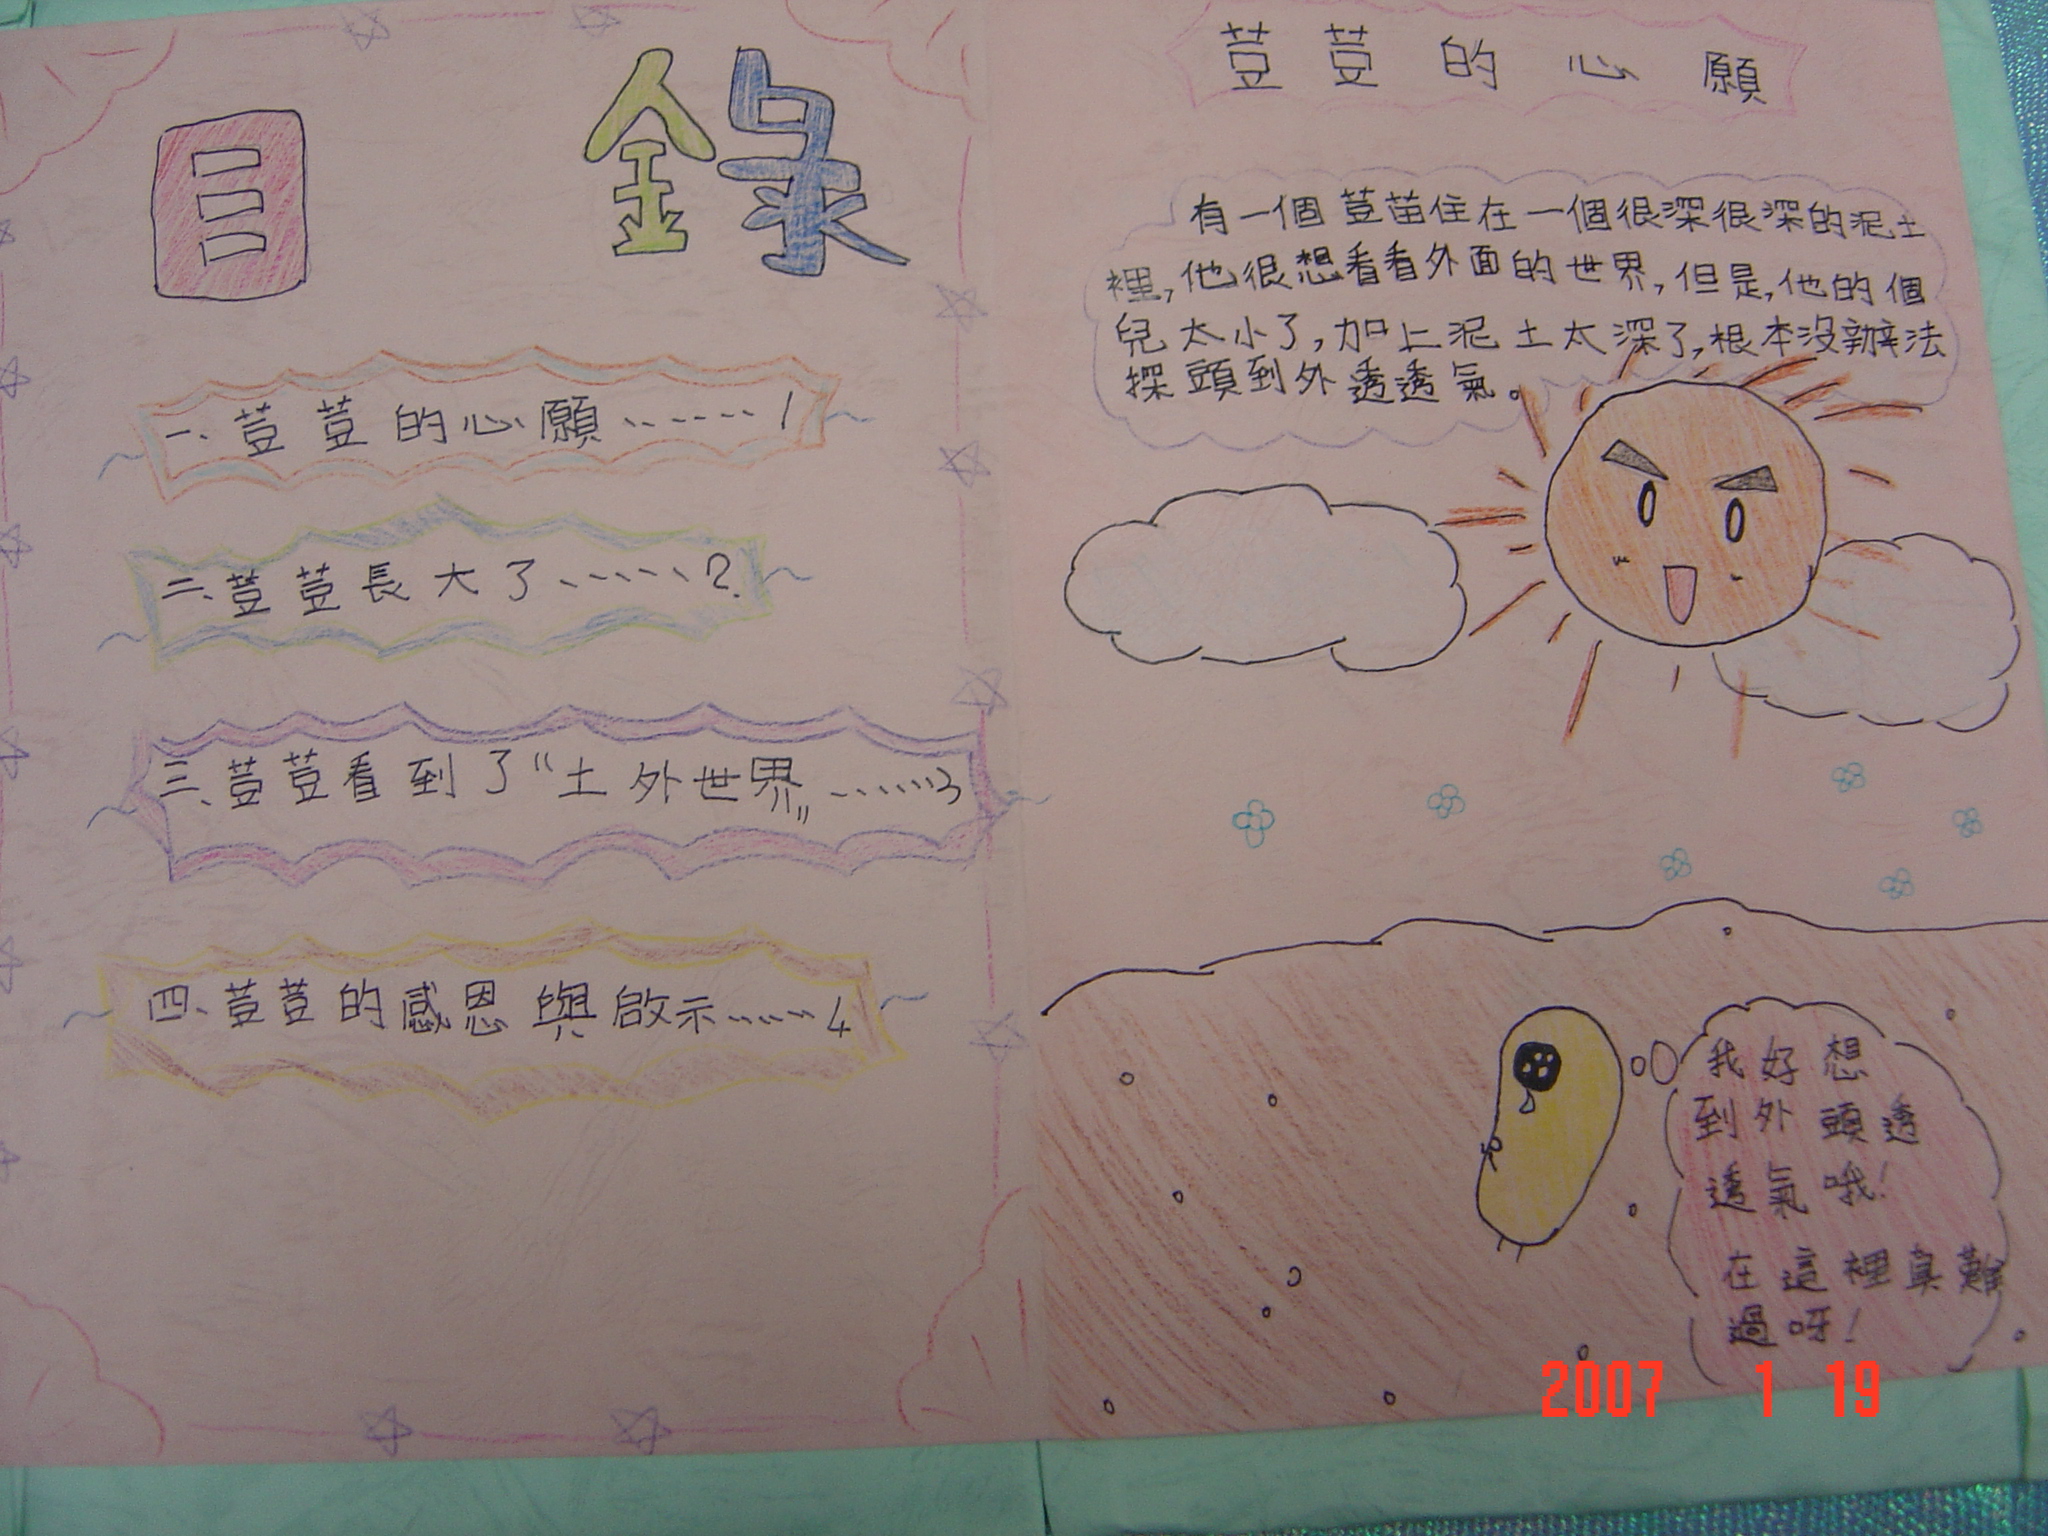 目錄
一、荳荳的心願......1
二、荳荳長大了......2
三、荳荳看到了“土外世界„......3
四、荳荳的感恩與啟示......4
荳荳的心願
有一個荳苗住在一個很深很深的泥土
裡,他很想看看外面的世界,但是,他的個
兒太小了,加上泥土太深了,根本沒辦法
探頭到外透透氣。
我好想
到外頭透
透氣哦!
在這裡真難
過呀!
2007 1 19